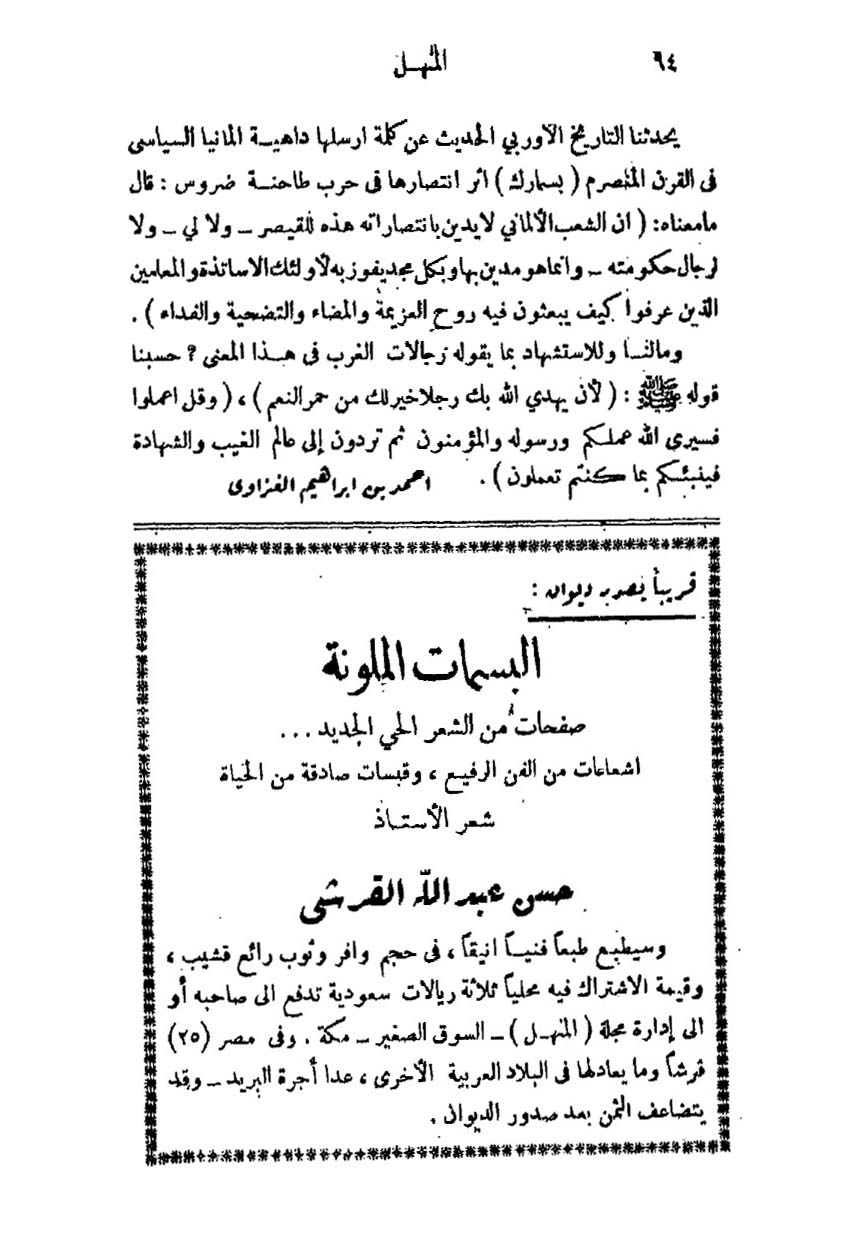 ٦٤
المنهل
يحدثنا التاريخ الآوربي الحديث عن كلمة ارسلها داهية المانيا السياسى
فى القرن المنصرم ( بسمارك ) اثر انتصارها فى حرب طاحنة ضروس : قال
مامعناه: ( ان الشعب الألماني لايدين بانتصاراته هذه للقيصر – ولا لي – ولا
لرجال حكومته – وانماهو مدين بها وبكل مجد يفوز به لأولئك الاساتذة والمعلمين
الذين عرفوا كيف يبعثون فيه روح العزيمة والمضاء والتضحية والفداء ) .
ومالنا وللاستشهاد بما يقوله رجالات الغرب فى هذا المعنى ؟ حسبنا
قوله ﷺ : ( لأن يهدي الله بك رجلا خير لك من حمر النعم ) ، ( وقل اعملوا
فسيرى الله عملكم ورسوله والمؤمنون ثم تردون إلى عالم الغيب والشهادة
فينبئسكم بما كنتم تعملون ) . احمد بن ابراهيم الغزاوى
قريباً يصدر ديوان :
البسمات الملونة
صفحات من الشعر الحي الجديد ...
اشعاعات من الفن الرفيع ، وقبسات صادقة من الحياة
شعر الأستاذ
حسن عبد الله القرشى
وسيطبع طبعاً فنياً انيقاً ، فى حجم وافر وثوب رائع قشيب ،
وقيمة الاشتراك فيه محلياً ثلاثة ريالات سعودية تدفع الى صاحبه أو
الى إدارة مجلة ( المنهل ) – السوق الصغير – مكة . وفى مصر (٢٥)
قرشاً وما يعادلها فى البلاد العربية الأخرى ، عدا أجرة البريد – وقد
يتضاعف الثمن بعد صدور الديوان .